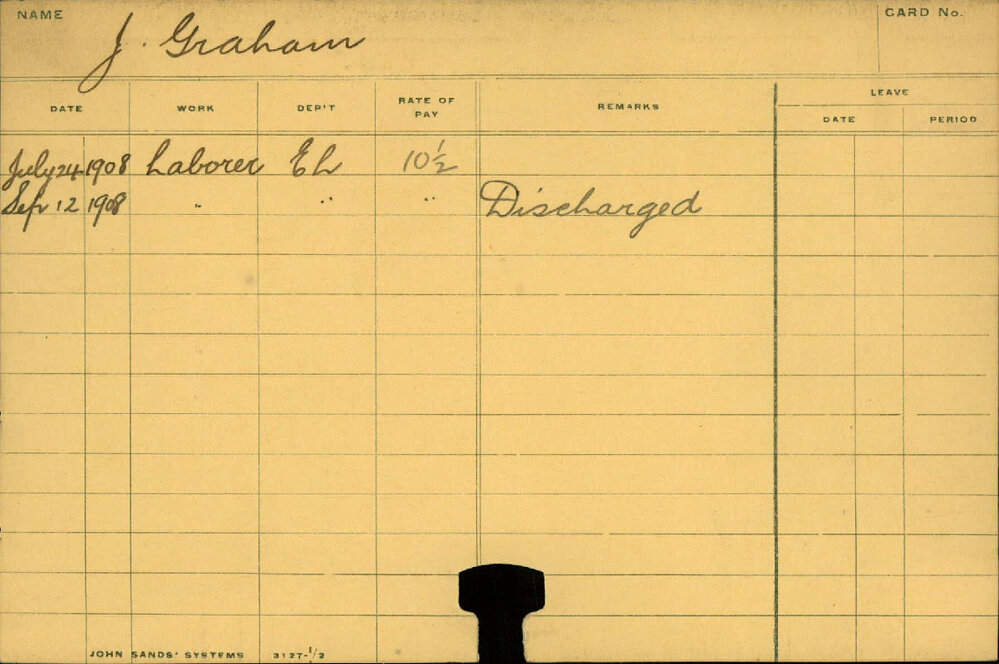 NAME J. Graham CARD No.
DATE WORK DEP'T RATE OF PAY REMARKS LEAVE
DATE PERIOD
July 24 1908 Laborer EL 10½
Sepr 12 1908 " " " Discharged
JOHN SANDS' SYSTEMS 3127-1/2